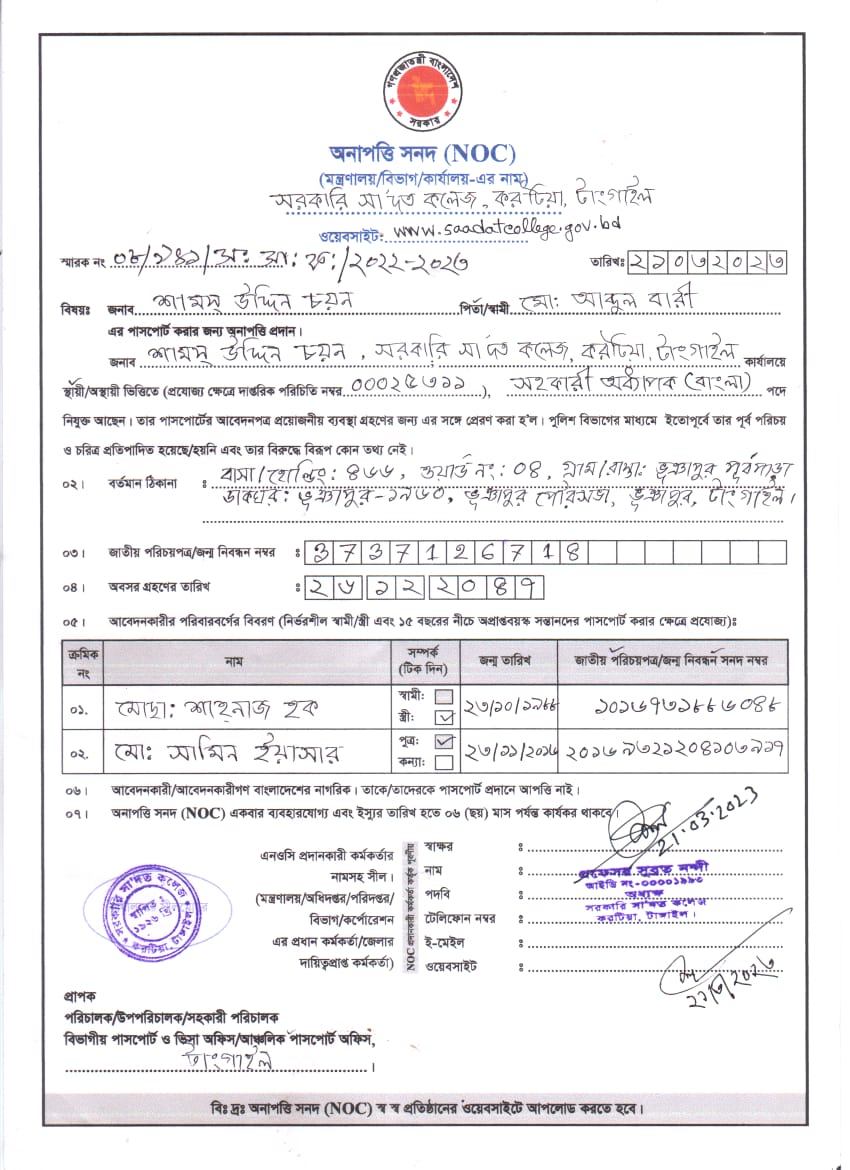 গণপ্রজাতন্ত্রী বাংলাদেশ
সরকার
অনাপত্তি সনদ (NOC)
(মন্ত্রণালয়/বিভাগ/কার্যালয়-এর নাম)
সরকারি সা'দত কলেজ, করটিয়া, টাংগাইল
ওয়েবসাইট: www.saadatcollege.gov.bd
স্মারক নং ০৮/১৪১/অ: আ: ক:/২০২২-২০২৩
তারিখঃ ২১০৩২০২৩
বিষয়ঃ জনাব শামস্ উদ্দিন চয়ন পিতা/স্বামী মো: আব্দুল বারী
এর পাসপোর্ট করার জন্য অনাপত্তি প্রদান।
জনাব শামস্ উদ্দিন চয়ন, সরকারি সা'দত কলেজ, করটিয়া, টাংগাইল কার্যালয়ে
স্থায়ী/অস্থায়ী ভিত্তিতে (প্রযোজ্য ক্ষেত্রে দাপ্তরিক পরিচিতি নম্বর ০০০২৫৩১১), সহকারী অধ্যাপক (বাংলা) পদে
নিযুক্ত আছেন। তার পাসপোর্টের আবেদনপত্র প্রয়োজনীয় ব্যবস্থা গ্রহণের জন্য এর সঙ্গে প্রেরণ করা হ'ল। পুলিশ বিভাগের মাধ্যমে ইতোপূর্বে তার পূর্ব পরিচয়
ও চরিত্র প্রতিপাদিত হয়েছে/হয়নি এবং তার বিরুদ্ধে বিরূপ কোন তথ্য নেই।
০২। বর্তমান ঠিকানা : বাসা/হোল্ডিং: ৪৬৬, ওয়ার্ড নং: ০৪, গ্রাম/রাস্তা: ভূঞাপুর পূর্বপাড়া
ডাকঘর: ভূঞাপুর-১৯৬০, ভূঞাপুর পৌরসভা, ভূঞাপুর, টাংগাইল।
০৩। জাতীয় পরিচয়পত্র/জন্ম নিবন্ধন নম্বর ঃ 3737126718
০৪। অবসর গ্রহণের তারিখ ঃ ২৬১২২০৪৭
০৫। আবেদনকারীর পরিবারবর্গের বিবরণ (নির্ভরশীল স্বামী/স্ত্রী এবং ১৫ বছরের নীচে অপ্রাপ্তবয়স্ক সন্তানদের পাসপোর্ট করার ক্ষেত্রে প্রযোজ্য)ঃ
ক্রমিক নং নাম সম্পর্ক (টিক দিন) জন্ম তারিখ জাতীয় পরিচয়পত্র/জন্ম নিবন্ধন সনদ নম্বর
০১. মোছা: শাহনাজ হক স্বামী: স্ত্রী: ২৩/১০/১৯৮৮
০২. মো: সামিন ইয়াসার পুত্র: কন্যা: ২৩/১১/২০১৬
০৬। আবেদনকারী/আবেদনকারীগণ বাংলাদেশের নাগরিক। তাকে/তাদেরকে পাসপোর্ট প্রদানে আপত্তি নাই।
০৭। অনাপত্তি সনদ (NOC) একবার ব্যবহারযোগ্য এবং ইস্যুর তারিখ হতে ০৬ (ছয়) মাস পর্যন্ত কার্যকর থাকবে।
21.03.2023
এনওসি প্রদানকারী কর্মকর্তার
নামসহ সীল।
(মন্ত্রণালয়/অধিদপ্তর/পরিদপ্তর/
বিভাগ/কর্পোরেশন
এর প্রধান কর্মকর্তা/জেলার
দায়িত্বপ্রাপ্ত কর্মকর্তা)
NOC প্রদানকারী কর্মকর্তা কর্তৃক পূরণীয়
স্বাক্ষর ঃ
নাম ঃ প্রফেসর সুব্রত নন্দী
আইডি নং-০০০০১৯৮৩
পদবি ঃ অধ্যক্ষ
সরকারি সা'দত কলেজ
টেলিফোন নম্বর ঃ করটিয়া, টাঙ্গাইল।
ই-মেইল ঃ
ওয়েবসাইট ঃ
২১/৩/২০২৩
সরকারি সা'দত কলেজ
স্থাপিত
১৯২৬
করটিয়া, টাঙ্গাইল
প্রাপক
পরিচালক/উপপরিচালক/সহকারী পরিচালক
বিভাগীয় পাসপোর্ট ও ভিসা অফিস/আঞ্চলিক পাসপোর্ট অফিস,
টাংগাইল।
বিঃ দ্রঃ অনাপত্তি সনদ (NOC) স্ব স্ব প্রতিষ্ঠানের ওয়েবসাইটে আপলোড করতে হবে।